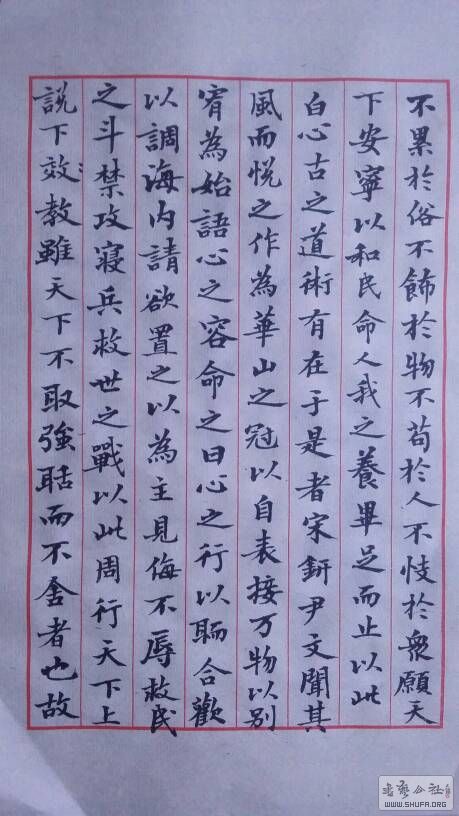 不累於俗不飾於物不苟於人不忮於衆願天
下安寧以和民命人我之養畢足而止以此
白心古之道術有在于是者宋鈃尹文聞其
風而悅之作為華山之冠以自表接万物以別
宥為始語心之容命之曰心之行以聏合歡
以調海內請欲置之以為主見侮不辱救民
之斗禁攻寢兵救世之戰以此周行天下上
說下效教雖天下不取強聒而不舍者也故
WWW.SHUFA.ORG